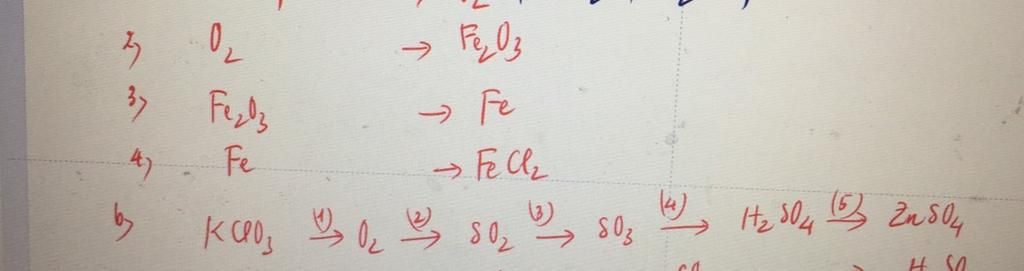 2) O₂ → Fe₂O₃
3) Fe₂O₃ → Fe
4) Fe → FeCl₂
b) KClO₃ (1)→ O₂ (2)→ SO₂ (3)→ SO₃ (4)→ H₂SO₄ (5)→ ZnSO₄